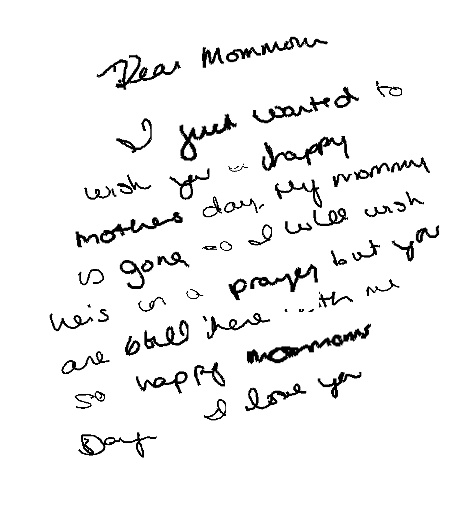 Dear Mommom
I just wanted to
wish you a happy
mothers day. My mommy
is gone so I will wish
heis in a prayer but you
are still here with me
so happy mommoms
Day I love you